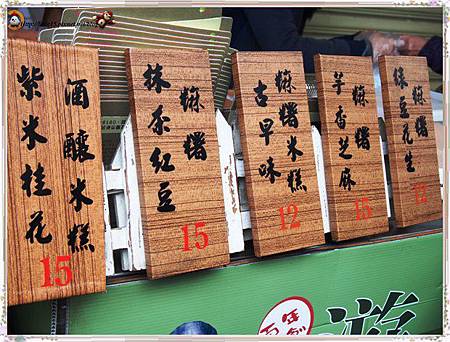 酒釀米糕
紫米桂花
15
糬
抹茶紅豆
15
糬米糕
古早味
12
糬
芋香芝麻
15
糬
綠豆花生
12